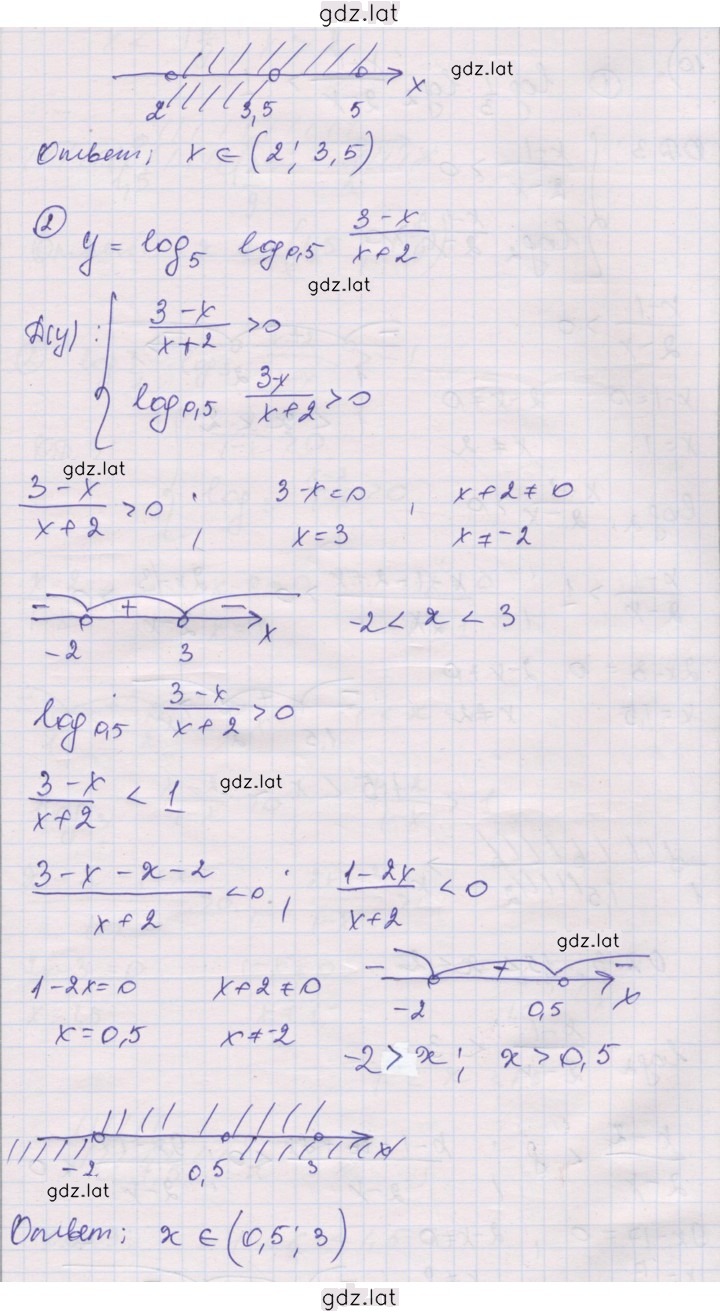 gdz.lat
gdz.lat
x
2 3,5 5
Ответ: x ∈ (2; 3,5)
② y = log₅ log₀,₅ (3-x)/(x+2)
gdz.lat
Д(y): { (3-x)/(x+2) > 0
log₀,₅ (3-x)/(x+2) > 0
gdz.lat
(3-x)/(x+2) > 0 ; 3-x=0 , x+2≠0
x=3 x≠-2
- + - x -2 < x < 3
-2 3
log₀,₅ (3-x)/(x+2) > 0
gdz.lat
(3-x)/(x+2) < 1
(3-x-x-2)/(x+2) < 0 ; (1-2x)/(x+2) < 0
gdz.lat
- + -
-2 0,5 x
1-2x=0 x+2≠0
x=0,5 x≠-2
-2 > x ; x > 0,5
x
-2 0,5 3
gdz.lat
Ответ: x ∈ (0,5; 3)
gdz.lat